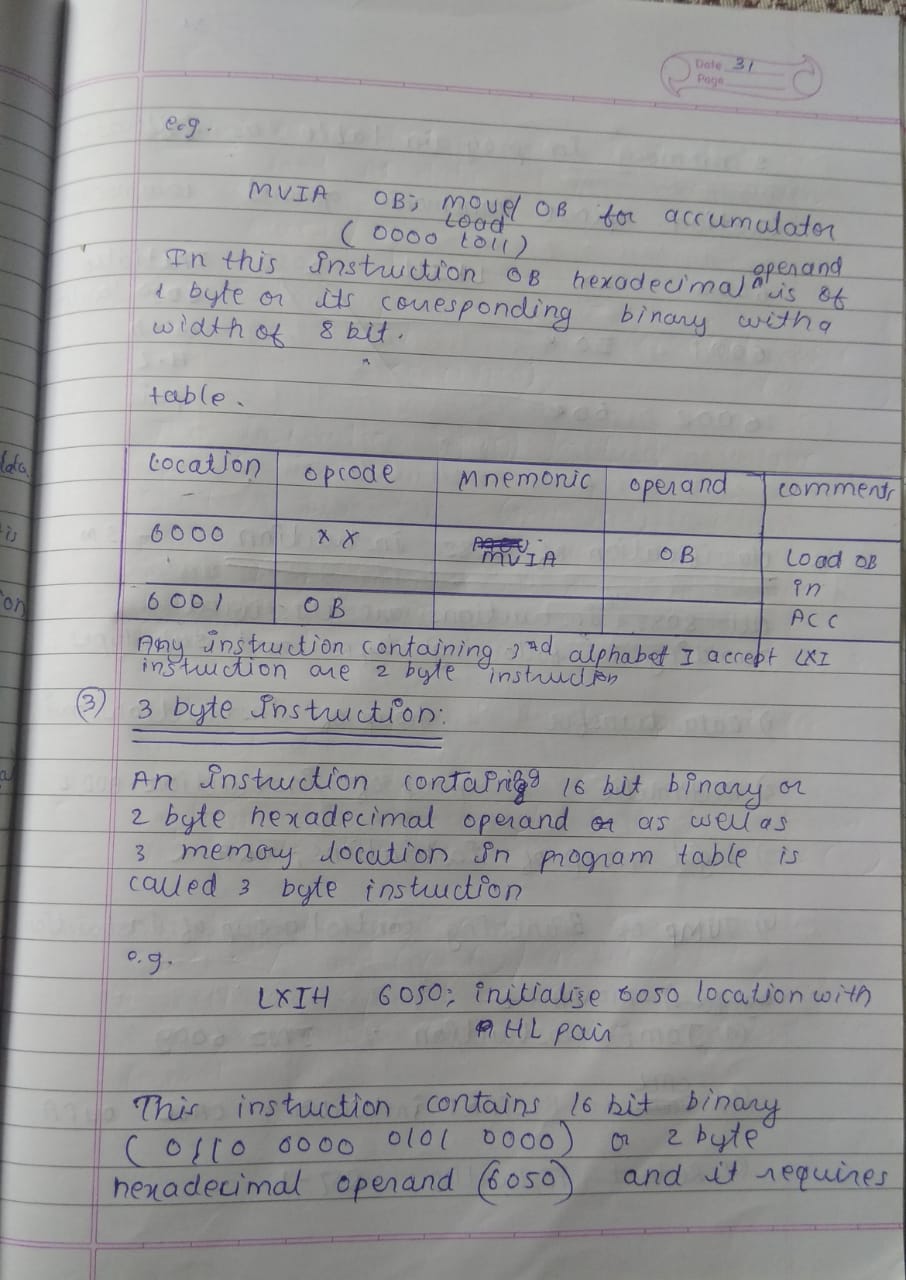 Date 31
Page
e.g.
MVIA OB; move/ OB for accumulator
Load
(0000 1011)
In this instruction OB hexadecimal operand is of
1 byte or its corresponding binary with a
width of 8 bit.
table.
Location opcode Mnemonic operand comments
6000 XX MVIA OB Load OB
in
6001 OB ACC
Any instruction containing 3rd alphabet I accept LXI
instruction are 2 byte instruction
③ 3 byte Instruction:
An instruction containing 16 bit binary or
2 byte hexadecimal operand as well as
3 memory location in program table is
called 3 byte instruction
e.g.
LXIH 6050; initialize 6050 location with
HL pair
This instruction contains 16 bit binary
(0110 0000 0101 0000) or 2 byte
hexadecimal operand (6050) and it requires